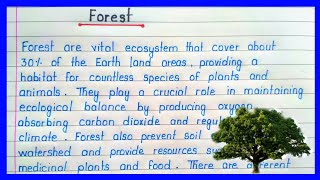 Forest
Forest are vital ecosystem that cover about
30% of the Earth land areas, providing a
habitat for countless species of plants and
animals. They play a crucial role in maintaining
ecological balance by producing oxygen,
absorbing carbon dioxide and regul
climate. Forest also prevent soil
watershed and provide resources su
medicinal plants and food. There are